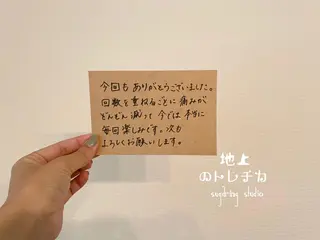 今回も ありがとうございました。
回数を重ねるごとに 痛みが
どんどん減って 今では 本当に
毎回楽しみです。次も
よろしくお願いします。
地上
のトレチカ